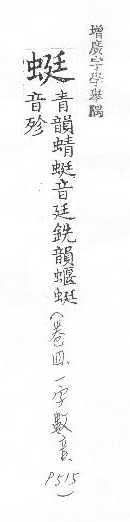 增廣字學舉隅
蜓
青韻蜻蜓音廷銑韻蝘蜓
音殄
(卷四、一字數音、P515)